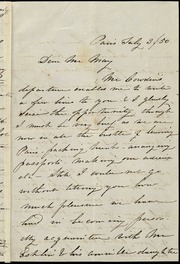 Paris July 3/50
Dear Mr May
Mr Cowdin's
departure enables me to write
a few lines to you & I gladly
seize the opportunity though
I must be very brief as we are
now in all the bustle of leaving
Paris, packing trunks - arranging
passports making our adieux
&c - Still I will not go
without telling you how
much pleasure we have
had in becoming person-
ally acquainted with Mr
& his amiable daughter